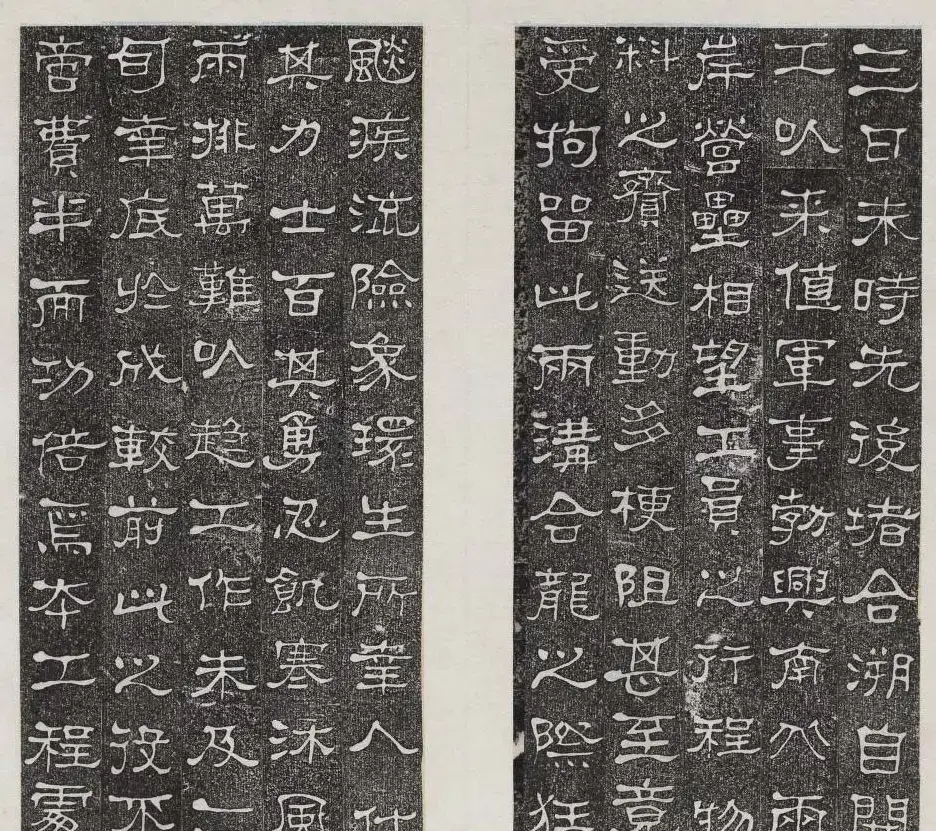 三日未時先後堵合溯自開
工以来值軍事勃興南北兩
岸營壘相望工員之行程物
料之齎送動多梗阻甚至竟
受拘留此兩溝合龍之際狂
飈疾流險象環生所幸人什
其力士百其勇忍飢寒沐風
雨排萬難以趋工作未及一
旬幸底於成較前此之役不
啻費半而功倍焉本工程處